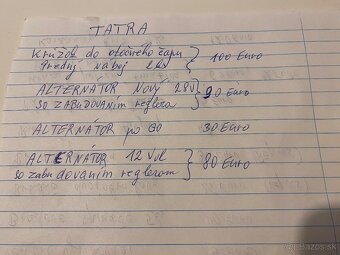 TATRA
Krúžok do otočného čapu
Predný náboj 2ks } 100 Euro
ALTERNÁTOR Nový 28V
so ZABUDOVANÍM reglera } 90 Euro
ALTERNÁTOR po GO 30 Euro
ALTERNÁTOR 12 Vol
so zabudovaním reglerom } 80 Euro
Bazos.sk